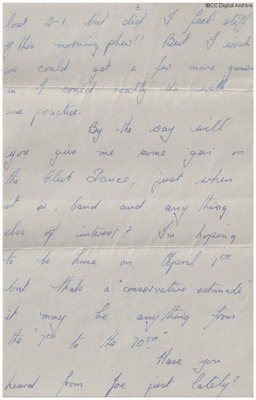 2
IBCC Digital Archive
lost 2-1 but did I feel stiff
this morning phew!! But I wish
we could get a few more games
in. I could really do with
some practice.
By the way will
you give me some gen on
the Club Dance; just when
it is, band and any thing
else of interest? I'm hoping
to be home on April 7TH
but thats a "conservative estimate"
it may be anything from
the "7TH to the 70TH"
Have you
heard from Joe just lately?